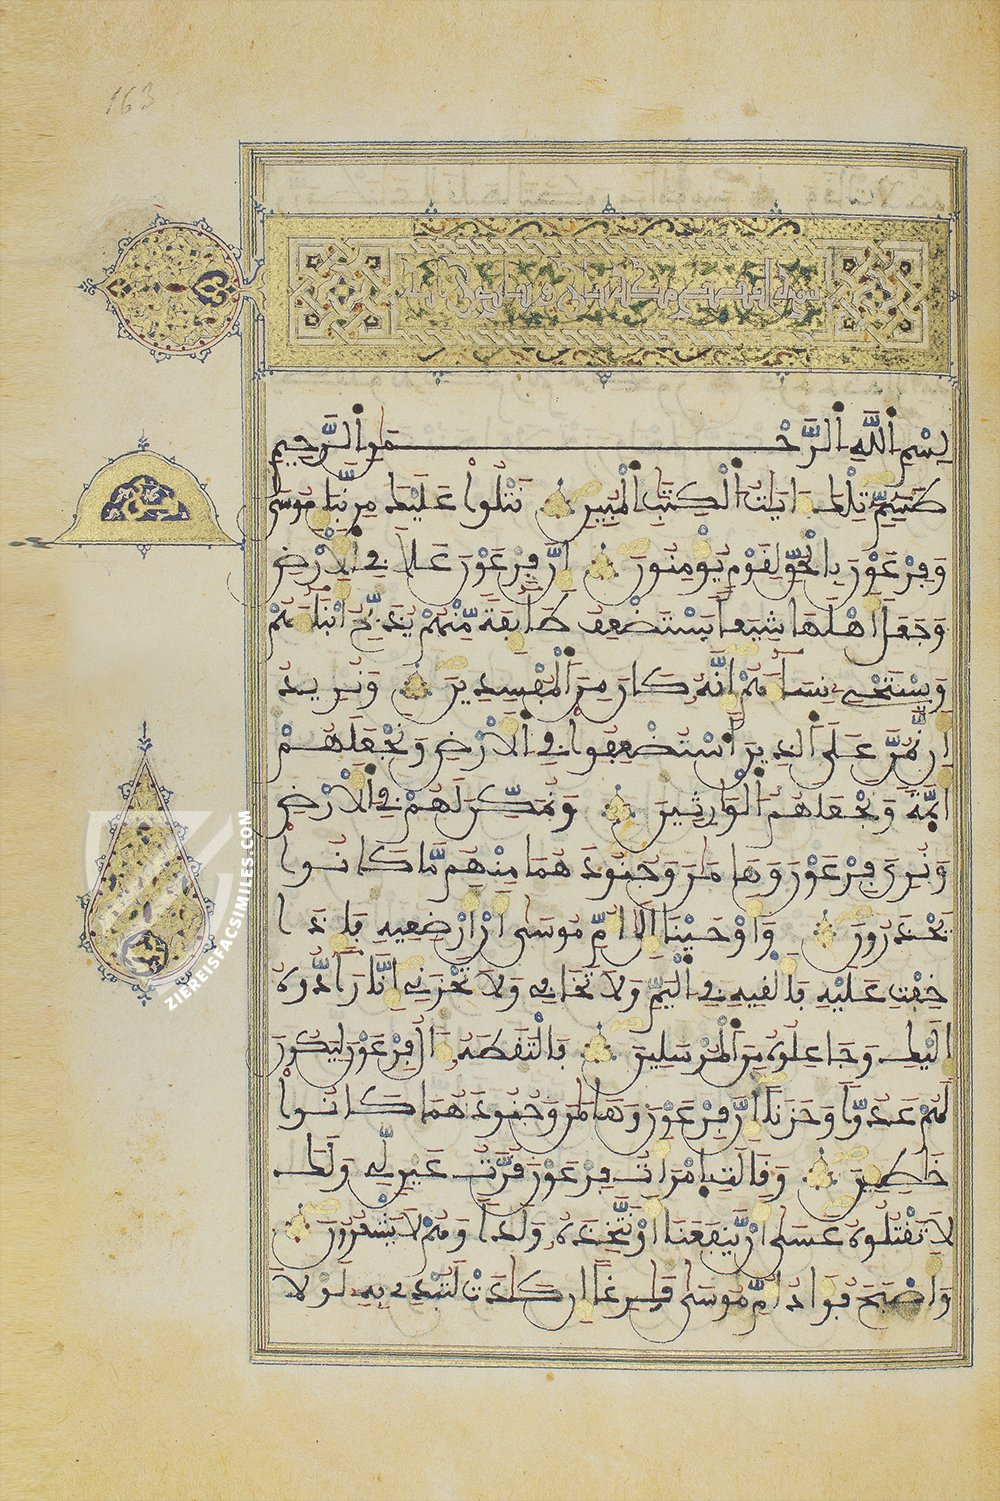 163
سورة القصص
بِسْمِ اللَّهِ الرَّحْمَنِ الرَّحِيمِ
طَسِمِّ تِلْكَ ءَايَاتُ الْكِتَٰبِ الْمُبِينِ نَتْلُوا عَلَيْكَ مِن نَّبَإِ مُوسَىٰ
وَفِرْعَوْنَ بِالْحَقِّ لِقَوْمٍ يُومِنُونَ إِنَّ فِرْعَوْنَ عَلَا فِي الْأَرْضِ
وَجَعَلَ أَهْلَهَا شِيَعًا يَسْتَضْعِفُ طَآئِفَةً مِّنْهُمْ يُذَبِّحُ أَبْنَآءَهُمْ
وَيَسْتَحْيِ نِسَآءَهُمْ إِنَّهُ كَانَ مِنَ الْمُفْسِدِينَ وَنُرِيدُ
أَن نَّمُنَّ عَلَى الَّذِينَ اسْتُضْعِفُوا فِي الْأَرْضِ وَنَجْعَلَهُمْ
أَئِمَّةً وَنَجْعَلَهُمُ الْوَارِثِينَ وَنُمَكِّنَ لَهُمْ فِي الْأَرْضِ
وَنُرِيَ فِرْعَوْنَ وَهَامَٰنَ وَجُنُودَهُمَا مِنْهُم مَّا كَانُوا
يَحْذَرُونَ وَأَوْحَيْنَا إِلَىٰ أُمِّ مُوسَىٰ أَنْ أَرْضِعِيهِ فَإِذَا
خِفْتِ عَلَيْهِ فَأَلْقِيهِ فِي الْيَمِّ وَلَا تَخَافِي وَلَا تَحْزَنِي إِنَّا رَآدُّوهُ
إِلَيْكِ وَجَاعِلُوهُ مِنَ الْمُرْسَلِينَ فَالْتَقَطَهُ ءَالُ فِرْعَوْنَ لِيَكُونَ
لَهُمْ عَدُوًّا وَحَزَنًا إِنَّ فِرْعَوْنَ وَهَامَٰنَ وَجُنُودَهُمَا كَانُوا
خَٰطِئِينَ وَقَالَتِ امْرَأَتُ فِرْعَوْنَ قُرَّتُ عَيْنٍ لِّي وَلَكَ
لَا تَقْتُلُوهُ عَسَىٰ أَن يَّنفَعَنَا أَوْ نَتَّخِذَهُ وَلَدًا وَهُمْ لَا يَشْعُرُونَ
وَأَصْبَحَ فُؤَادُ أُمِّ مُوسَىٰ فَٰرِغًا إِن كَادَتْ لَتُبْدِي بِهِ لَوْلَا
ZIEREISFACSIMILES.COM